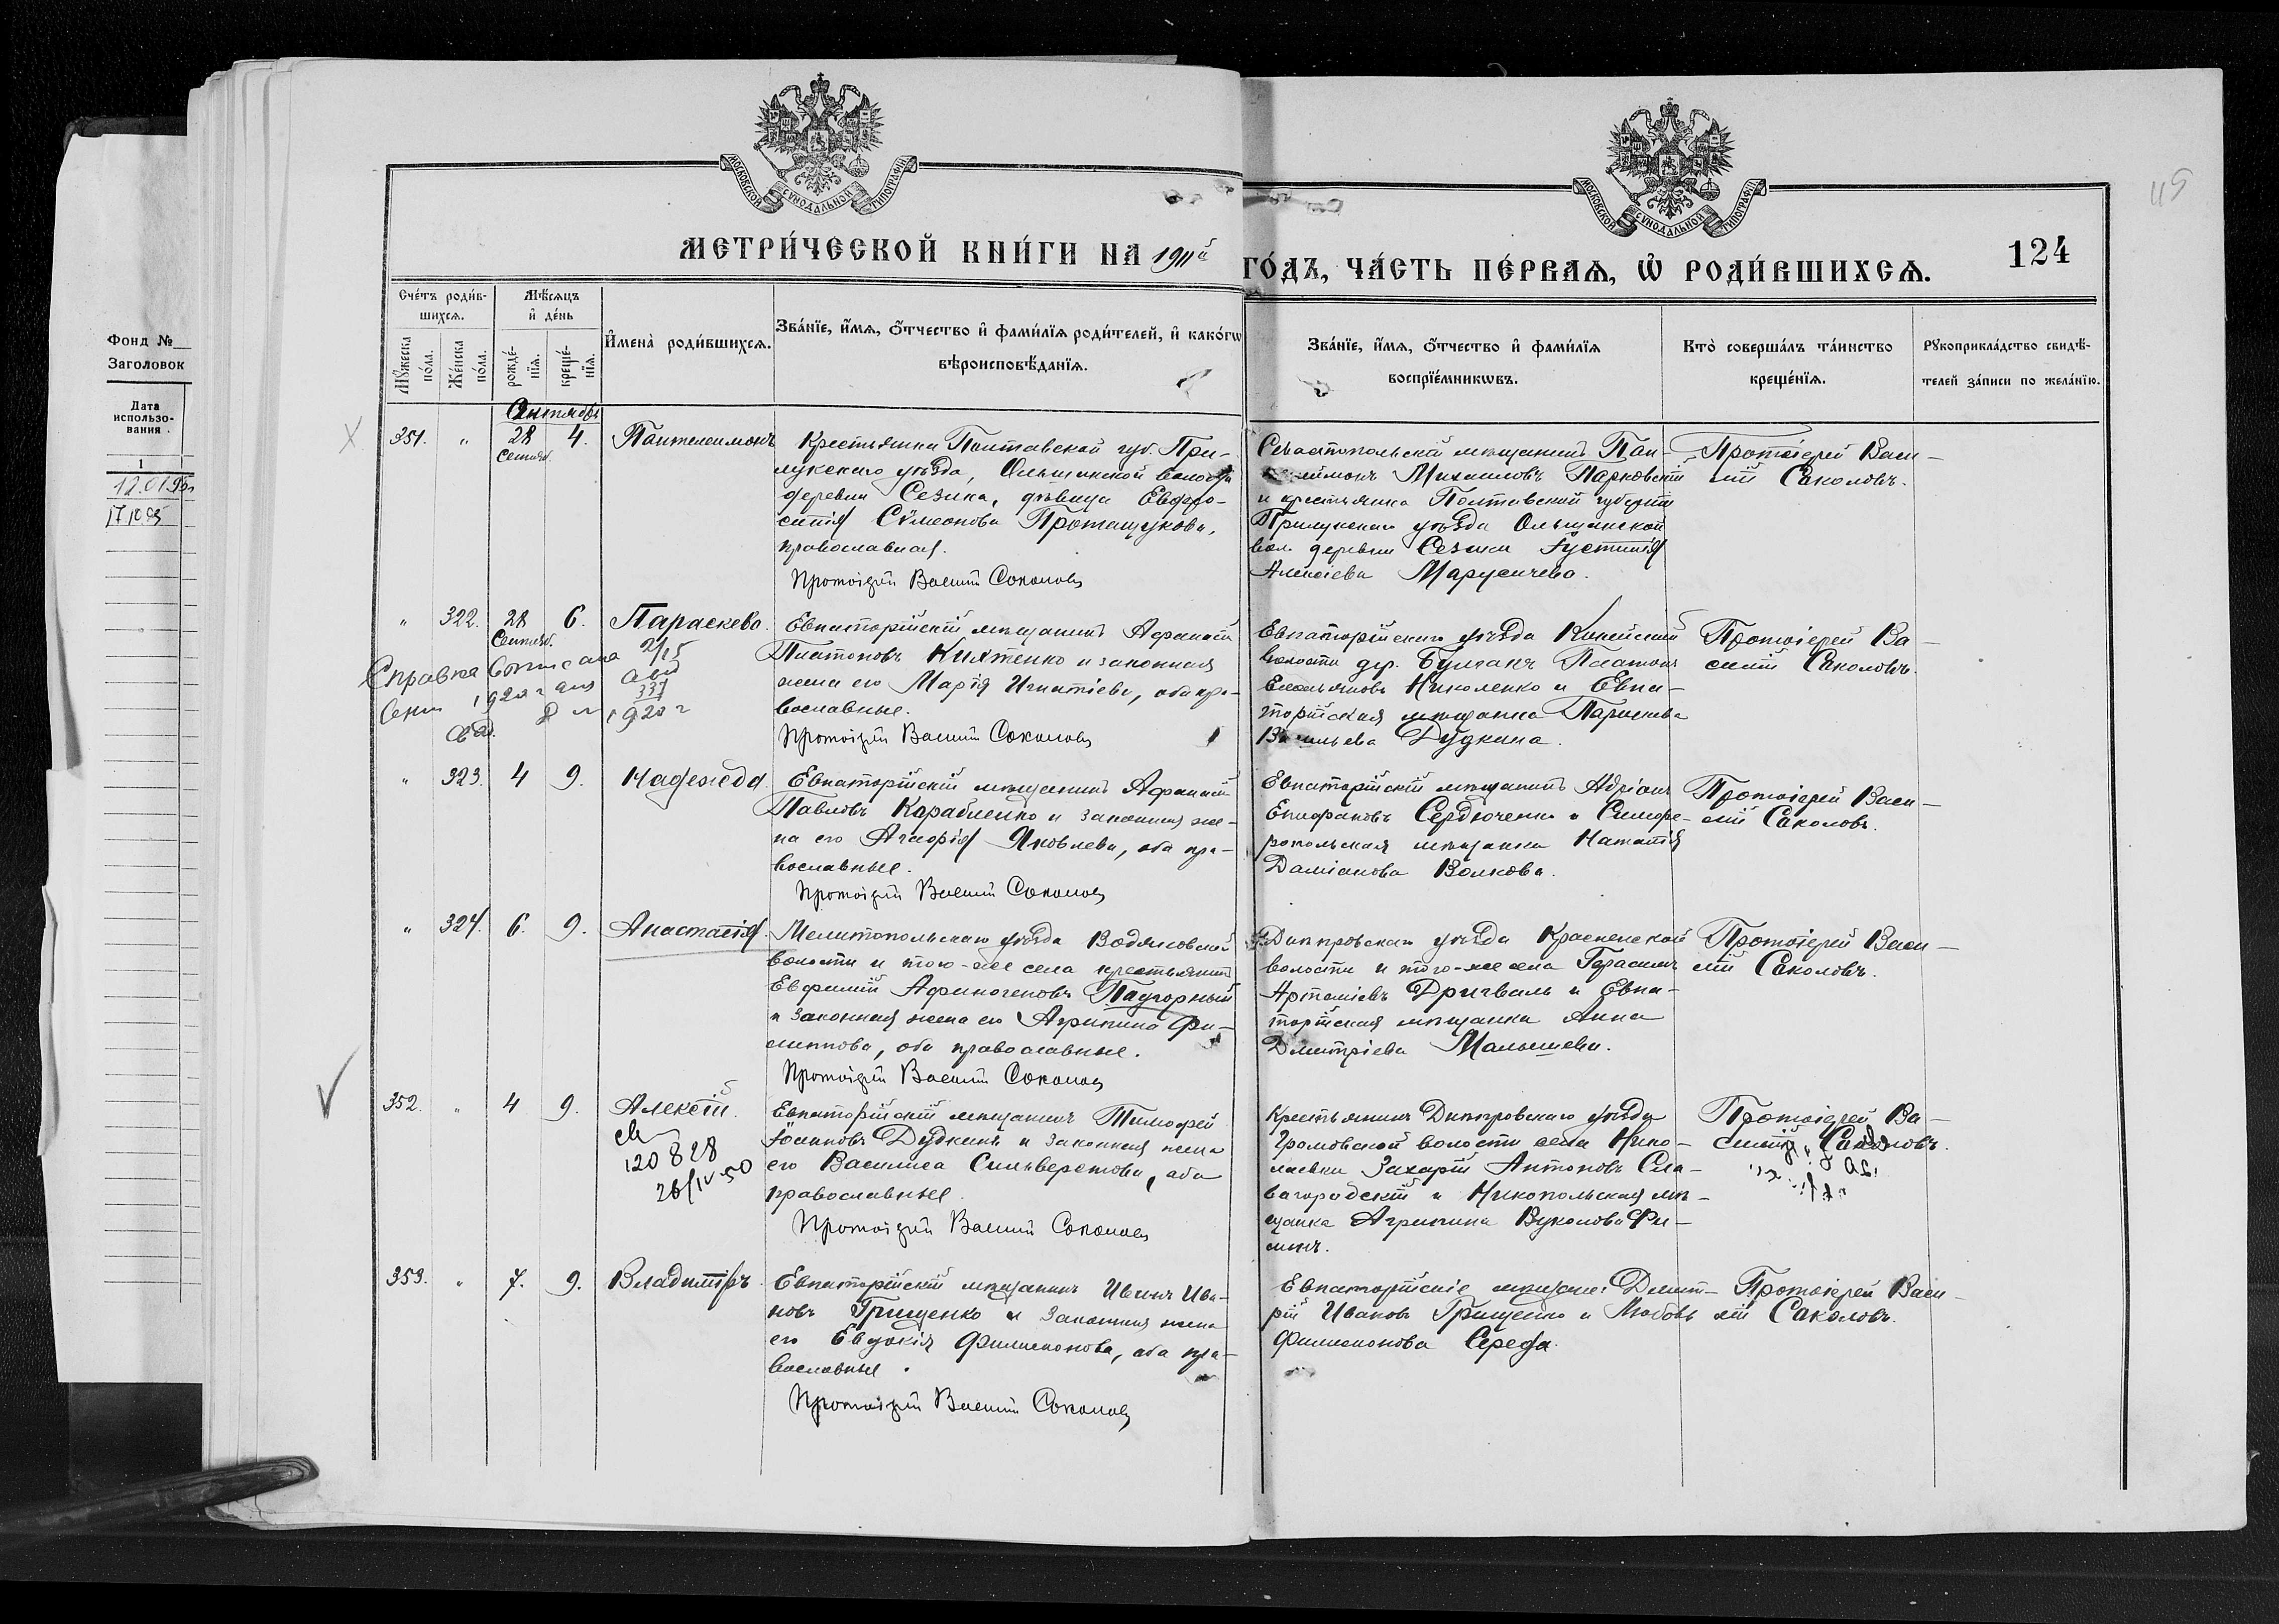 МОСКОВСКОЙ СѴНОДАЛЬНОЙ ТИПОГРАФІИ
МОСКОВСКОЙ СѴНОДАЛЬНОЙ ТИПОГРАФІИ
115
МЕТРИ́ЧЕСКОЙ КНИ́ГИ НА 1911й
ГО́ДЪ, ЧА́СТЬ ПЕ́РВАЯ, Ѿ РОДИ́ВШИХСЯ.
124
Фонд №
Заголовок
Дата
использо-
вания
1
12.01.95
17.10.95
Сче́тъ роди́в-
шихся.
Му́жеска
по́ла.
Же́нска
по́ла.
Мѣ́сяцъ
и҆ де́нь
рожде́-
нїя.
креще́-
нїя.
И҆мена̀ роди́вшихся.
Зва́нїе, и҆́мя, ѻ҆́тчество и҆ фами́лїя роди́телей, и҆ како́гѡ
вѣроисповѣ́данїя.
Зва́нїе, и҆́мя, ѻ҆́тчество и҆ фами́лїя
воспрїе́мникѡвъ.
Кто̀ соверша́лъ та́инство
креще́нїя.
Рꙋкоприкла́дство свидѣ́-
телей за́писи по жела́нїю.
Октябрь
351. " 28 4. Пантелеимонъ
Сентяб.
Крестьянки Полтавской губ. При-
лукскаго уѣзда, Ольшанской волости
деревни Сезика, дѣвица Евфро-
синія Сѵмеонова Протащукова,
православная.
Протоіерей Василій Соколовъ
Севастопольскій мѣщанинъ Пан-
телеймонъ Михаиловъ Парковскій
и крестьянка Полтавской губерніи
Прилукскаго уѣзда Ольшанской
вол. деревни Сезики Іустинія
Алексіева Марусичева.
Протоіерей Васи-
лій Соколовъ.
" 322. 28 6. Параскева.
Сентяб.
Справка
1920 г
337
1920 г
Евпаторійскій мѣщанинъ Афанасій
Платоновъ Кияшенко и законная
жена его Марія Игнатіева, оба пра-
вославные.
Протоіерей Василій Соколовъ
Евпаторійскаго уѣзда
волости дер. Булганъ Платонъ
Емельяновъ Николенко и Евпа-
торійская мѣщанка Параскева
Васильева Дудкина.
Протоіерей Ва-
силій Соколовъ.
" 323. 4 9. Надежда
Евпаторійскій мѣщанинъ Афанасій
Павловъ Карабленко и законная же-
на его Агафія Яковлева, оба пра-
вославные.
Протоіерей Василій Соколовъ
Евпаторійскій мѣщанинъ Адріанъ
Епифановъ Сердюченко и Симфе-
ропольская мѣщанка Наталія
Даміанова Волкова.
Протоіерей Васи-
лій Соколовъ.
" 324. 6. 9. Анастасія.
Мелитопольскаго уѣзда Водяновской
волости и того-же села крестьянинъ
Евфимій Афиногеновъ Падгорный
и законная жена его Агрипина Фи-
липпова, оба православные.
Протоіерей Василій Соколовъ
Днѣпровскаго уѣзда Красненской
волости и того-же села Герасимъ
Артеміевъ Дригваль и Евпа-
торійская мѣщанка Анна
Димитріева Малышева.
Протоіерей Васи-
лій Соколовъ.
352. " 4 9. Алексій.
120828
26/IV-50
Евпаторійскій мѣщанинъ Тимофей
Іоанновъ Дудкинъ и законная жена
его Василиса Сильверстова, оба
православные.
Протоіерей Василій Соколовъ
Крестьянинъ Днѣпровскаго уѣзда
Громовской волости села Нико-
лаевки Захарій Антоновъ Сла-
вгородскій и Никопольская мѣ-
щанка Агрипина Вуколова Фи-
линъ.
Протоіерей Ва-
силій Соколовъ.
353. " 7. 9. Владиміръ.
Евпаторійскій мѣщанинъ Иванъ Ива-
новъ Грищенко и законная жена
его Евдокія Филимонова, оба пра-
вославные.
Протоіерей Василій Соколовъ
Евпаторійскіе мѣщане: Димит-
рій Ивановъ Грищенко и Любовь
Филимонова Середа.
Протоіерей Васи-
лій Соколовъ.